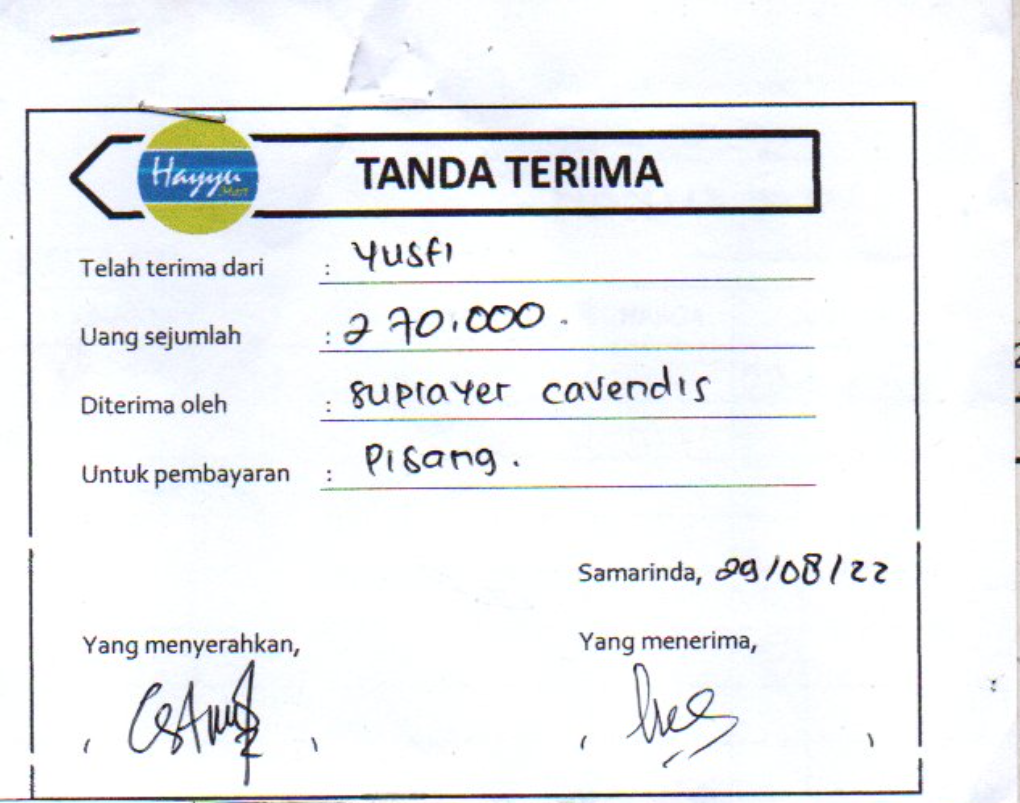 Hayyu
Mart
TANDA TERIMA
Telah terima dari : Yusfi
Uang sejumlah : 270.000.
Diterima oleh : suprayer cavendis
Untuk pembayaran : Pisang.
Samarinda, 29/08/22
Yang menyerahkan,
Yang menerima,